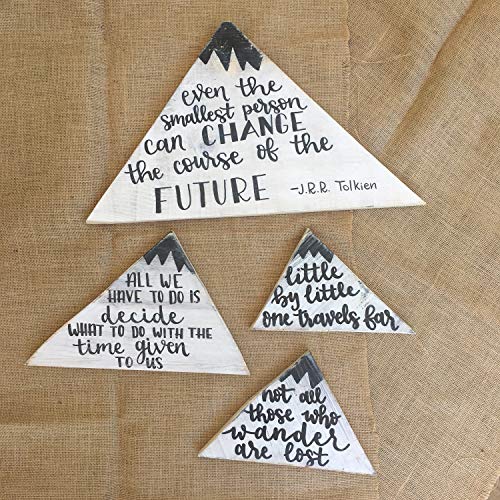 even the
smallest person
can CHANGE
the course of the
FUTURE -J.R.R. Tolkien
ALL WE
HAVE TO DO IS
decide
WHAT TO DO WITH THE
time given
TO US
little
by little
one travels far
not all
those who
wander
are lost